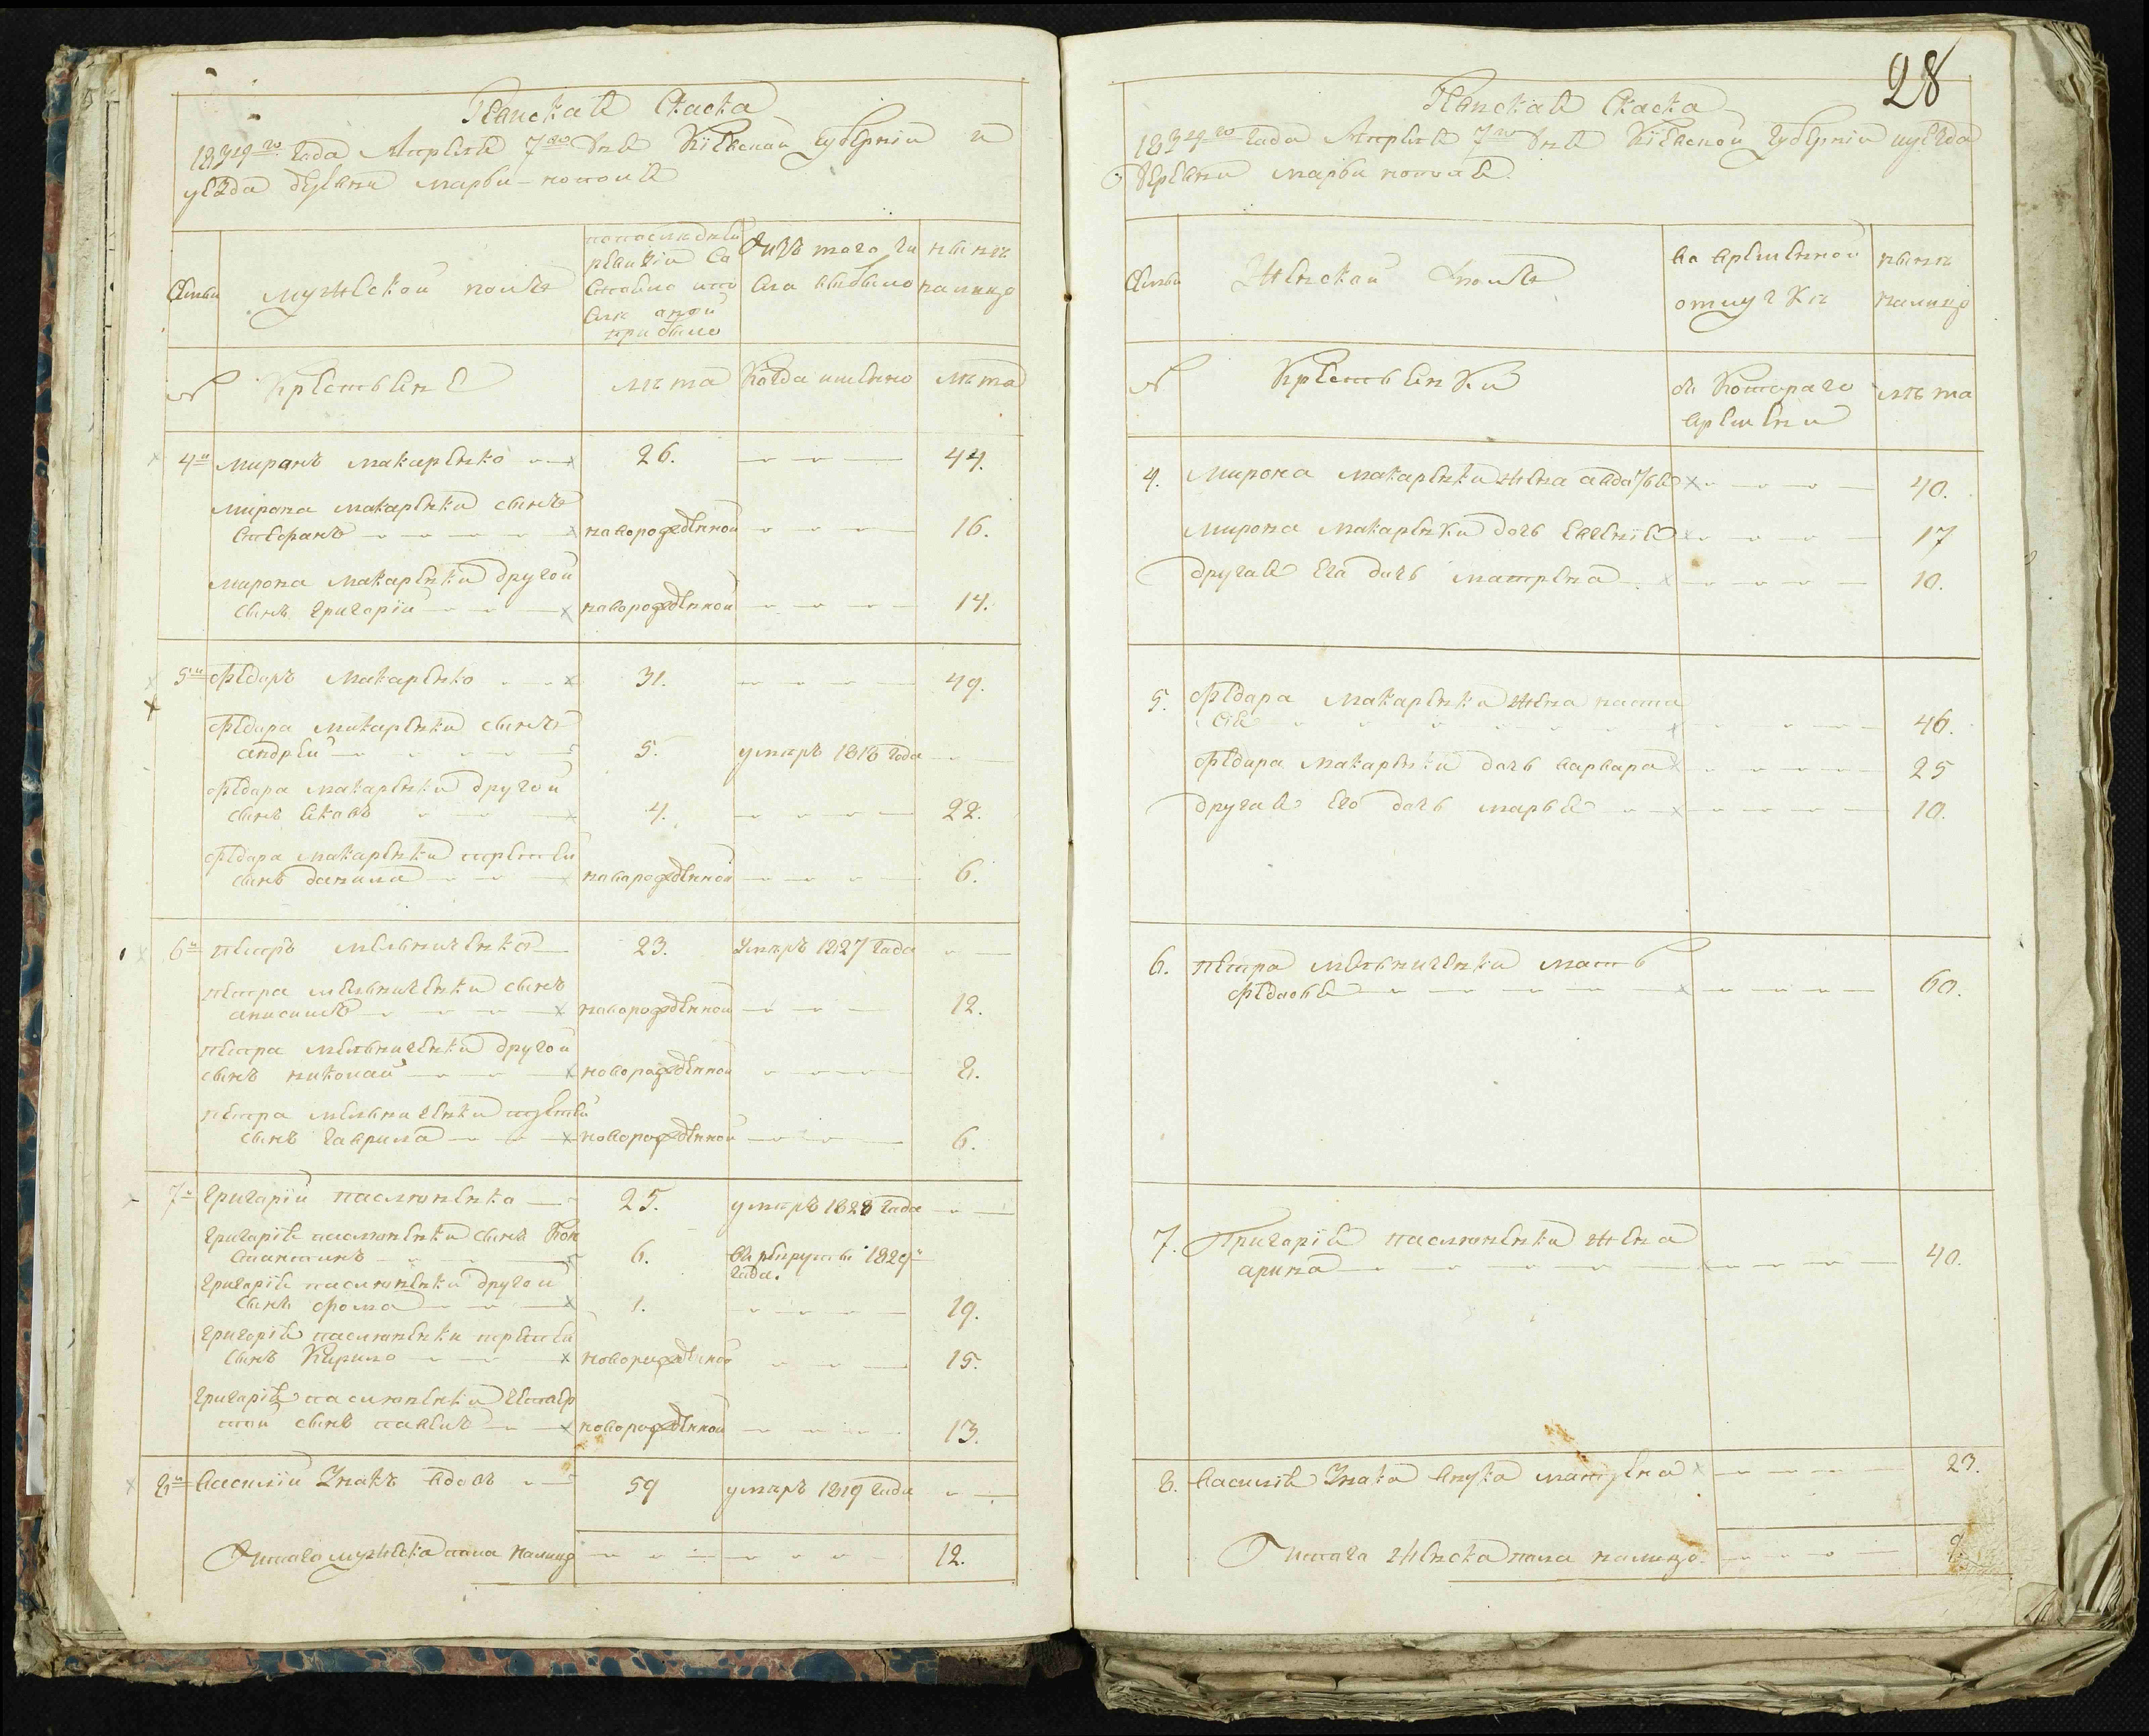 Ревиская Скаска
1834го года Апреля 7го дня Кіевской губерніи и
уезда деревни марви-нополя
Семьи
мужескои полъ
попоследнеи
ревизіи Со
стояло ипо
сле онои
прибыло
Изъ того чи
сла выбыло
нынѣ
налицо
№
Крестьяне
лѣта
Когда именно
лѣта
4й миронъ макаренко 26. 44.
мирона макаренки сынъ
новорожденнои 16.
мирона макаренки другои
сынъ григоріи новорожденнои 14.
5й федоръ макаренко 31. 49.
федора макаренки сынъ
андреи 5. умѣръ 1818 года
федора макаренки другои
сынъ яковъ 4. 22.
федора макаренки третеи
сынъ данила новорожденнои 6.
6й петръ мельниченко 23. Умѣръ 1827 года
петра мельниченки сынъ
анисимъ новорожденнои 12.
петра мельниченки другои
сынъ николаи новорожденнои 8.
петра мельниченки третеи
сынъ гаврила новорожденнои 6.
7й григоріи пасмоненко 25. умѣръ 1828 года
григорія пасмоненки сынъ Кон
стантинъ 6. в рекруты 1829й
года.
григорія пасмоненки другои
сынъ фома 1. 19.
григорія пасмоненки третеи
сынъ Кирило новорожденнои 15.
григорія пасмоненки четвер
тои сынъ павелъ новорожденнои 13.
8й Василіи Знакъ вдовъ 59 умѣръ 1819 года
Итого мужеска пола налицо 12.
28
Ревиская Скаска
1834го года Апреля 7го дня Кіевской губерніи иуезда
деревни марви нополя
Семьи
Женскаи полъ
во временнои
отлучкѣ
нынѣ
налицо
№
Крестьянки
съ Котораго
времени
лѣта
4. мирона макаренки жена авдотья 40.
мирона макаренки дочь евгенія 17
другая Его дочь матрена 10.
5. федора макаренки жена наста
сія 46.
федора макаренки дочь варвара 25
другая Его дочь марья 10.
6. петра мельниченки мать
федосья 60.
7. Григорія пасмоненки жена
арина 40.
8. василія Знака внука матрена 23.
Итого женска пола налицо 9.